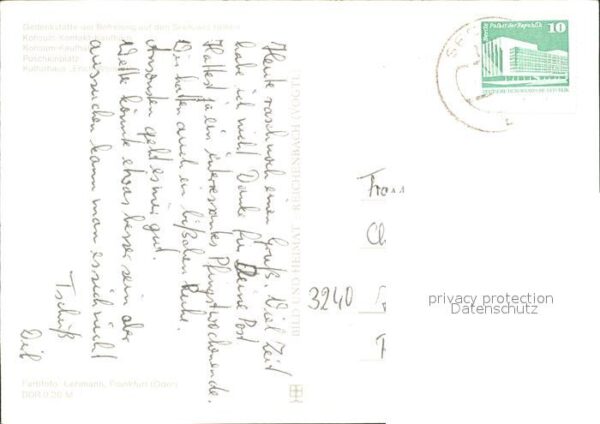 Gedenkstätte der Befreiung auf den Seelower Höhen
Konsum-Kontaktkaufhalle
Konsum-Kaufhaus
Puschkinplatz
Kulturhaus
Heute rasch noch einen Gruß. Viel Zeit
habe ich nicht. Danke für Deine Post
Hattest ja ein interessantes Pfingstwochenende.
Wir hatten auch ein bißchen Ruhe.
Ansonsten geht es mir gut.
Wetter könnte etwas besser sein aber
aussuchen kann man es sich nicht
Tschüß
BILD UND HEIMAT REICHENBACH (VOGTL)
Farbfoto: Lehmann, Frankfurt (Oder)
DDR 0,20 M
Berlin, Palast der Republik
10
DEUTSCHE DEMOKRATISCHE REPUBLIK
3240
privacy protection
Datenschutz